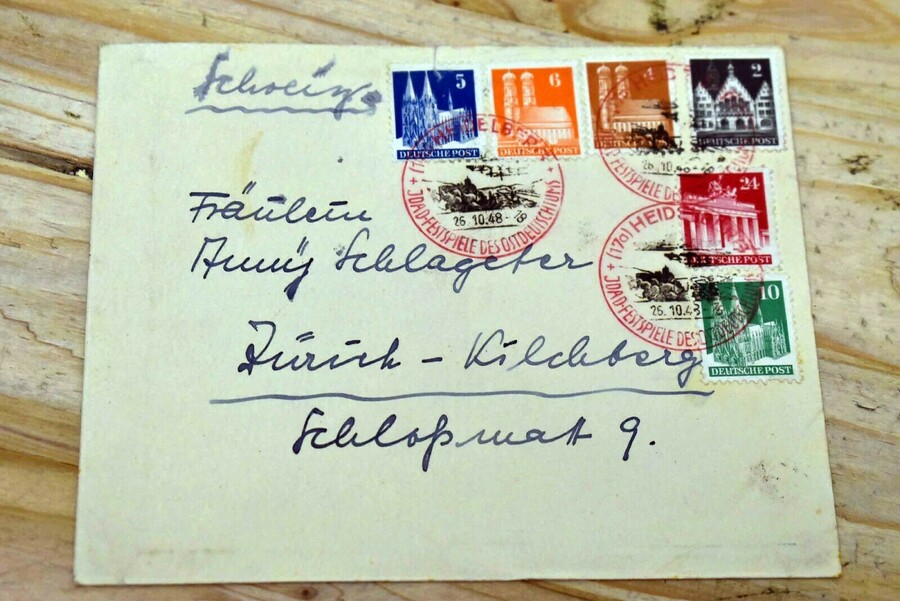 Schweiz
5
DEUTSCHE POST
6
DEUTSCHE POST
4
2
DEUTSCHE POST
24
DEUTSCHE POST
10
DEUTSCHE POST
HEIDELBERG
26.10.48
FESTSPIELE DES OSTDEUTSCHTUMS
26.10.48
FESTSPIELE DES
(17a) HEID
26.10.48
FESTSPIELE DES
Fräulein
Anny Schlageter
Zürich - Kilchberg
Schloßmatt 9.